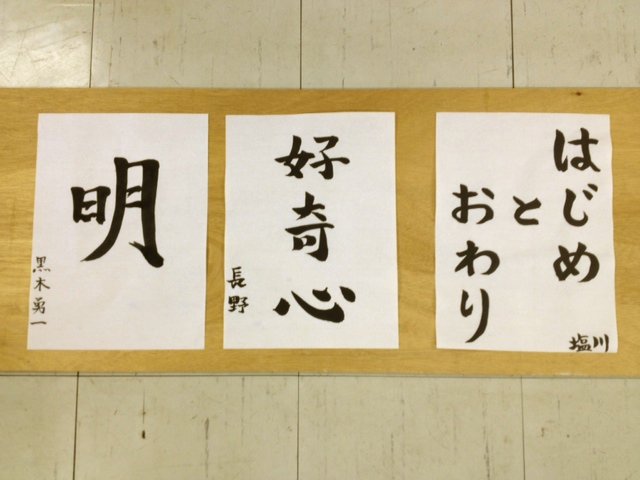 はじめ
と
おわり
塩川
好奇心
長野
明
黒木勇一